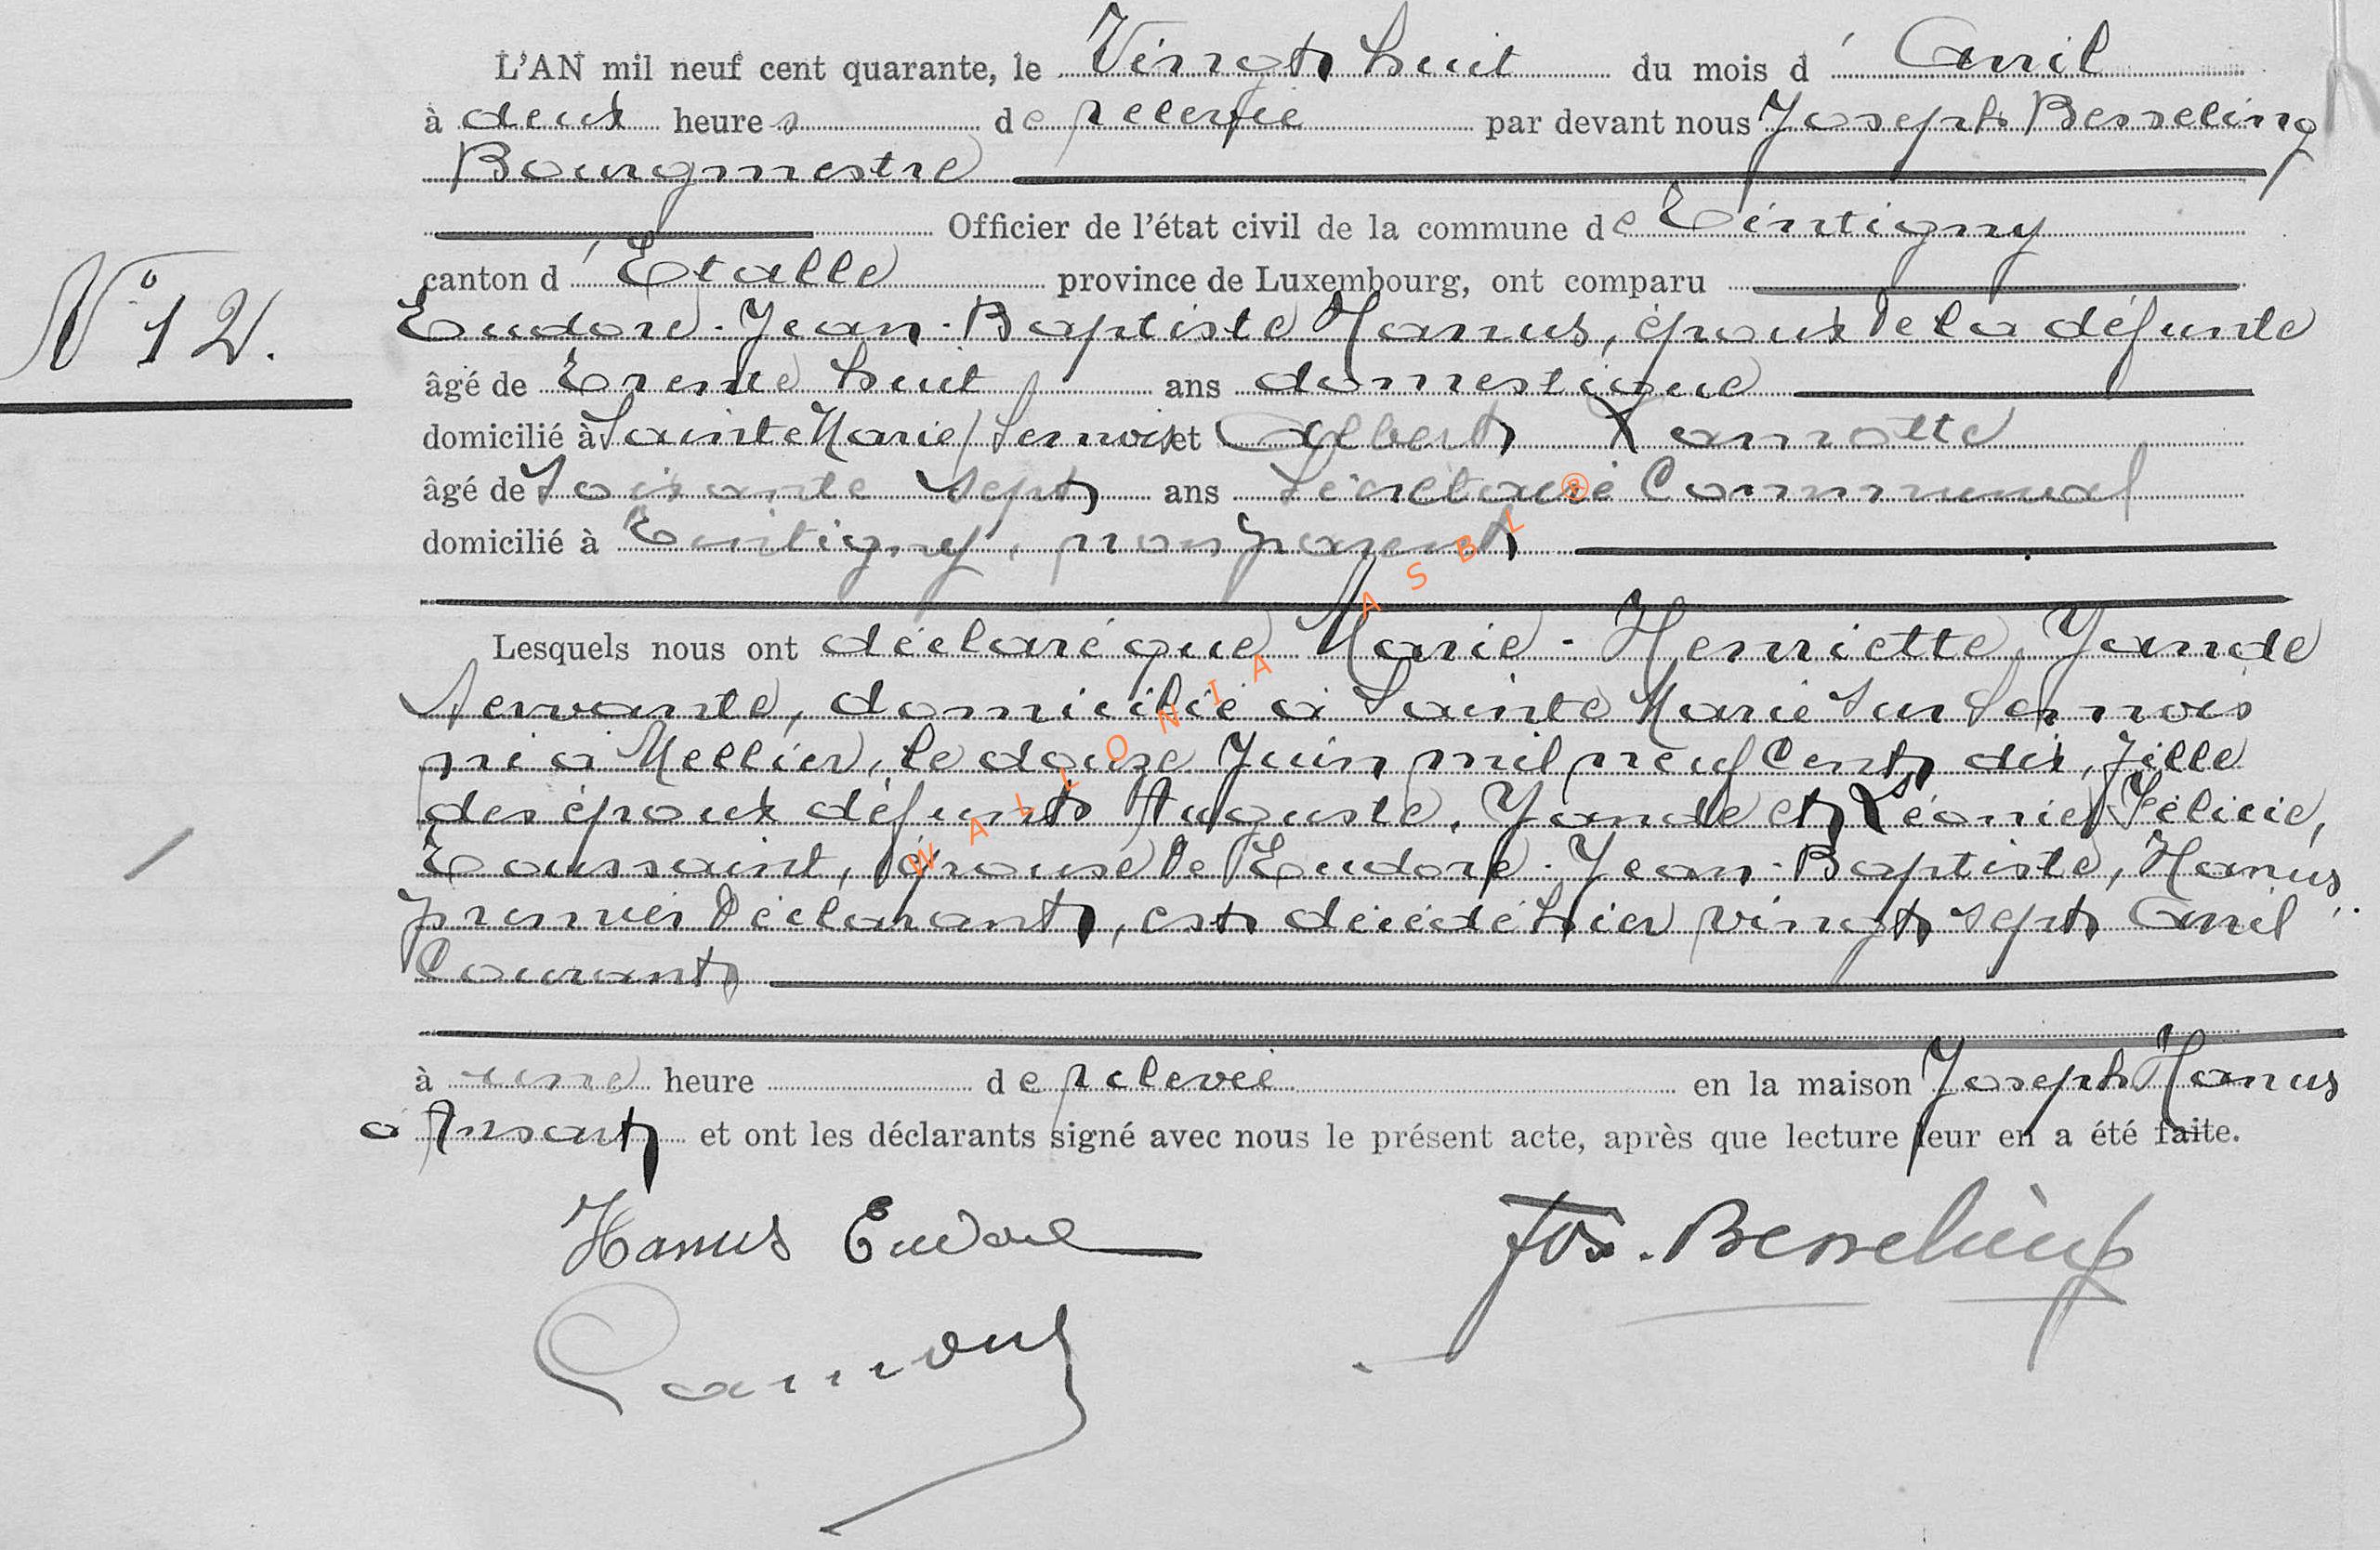 L'AN mil neuf cent quarante, le Vingt huit du mois d' Avril
à deux heures de relevée par devant nous Joseph Besseling
Bourgmestre
Officier de l'état civil de la commune de Tintigny
canton d' Etalle province de Luxembourg, ont comparu
N° 12.
Eudore-Jean-Baptiste Hanus, époux de la défunte
âgé de Trente huit ans domestique
domicilié à Sainte Marie/Semois et Albert Lamotte
âgé de Soixante sept ans Secrétaire Communal
domicilié à Tintigny, non parent
Lesquels nous ont déclaré que Marie-Henriette, Jande
Servante, domiciliée à Sainte Marie Sur Semois
né à Mellier, le douze Juin mil neuf Cent dix, fille
des époux défunts Auguste, Jande et Léonie Félicie,
Toussaint, épouse de Eudore-Jean-Baptiste, Hanus,
premier déclarant, est décédé hier vingt sept Avril
Courant
à une heure de relevée en la maison Joseph Hanus
à Ansart et ont les déclarants signé avec nous le présent acte, après que lecture leur en a été faite.
Hanus Eudore Jos. Besseling
WALLONIA ASBL ®